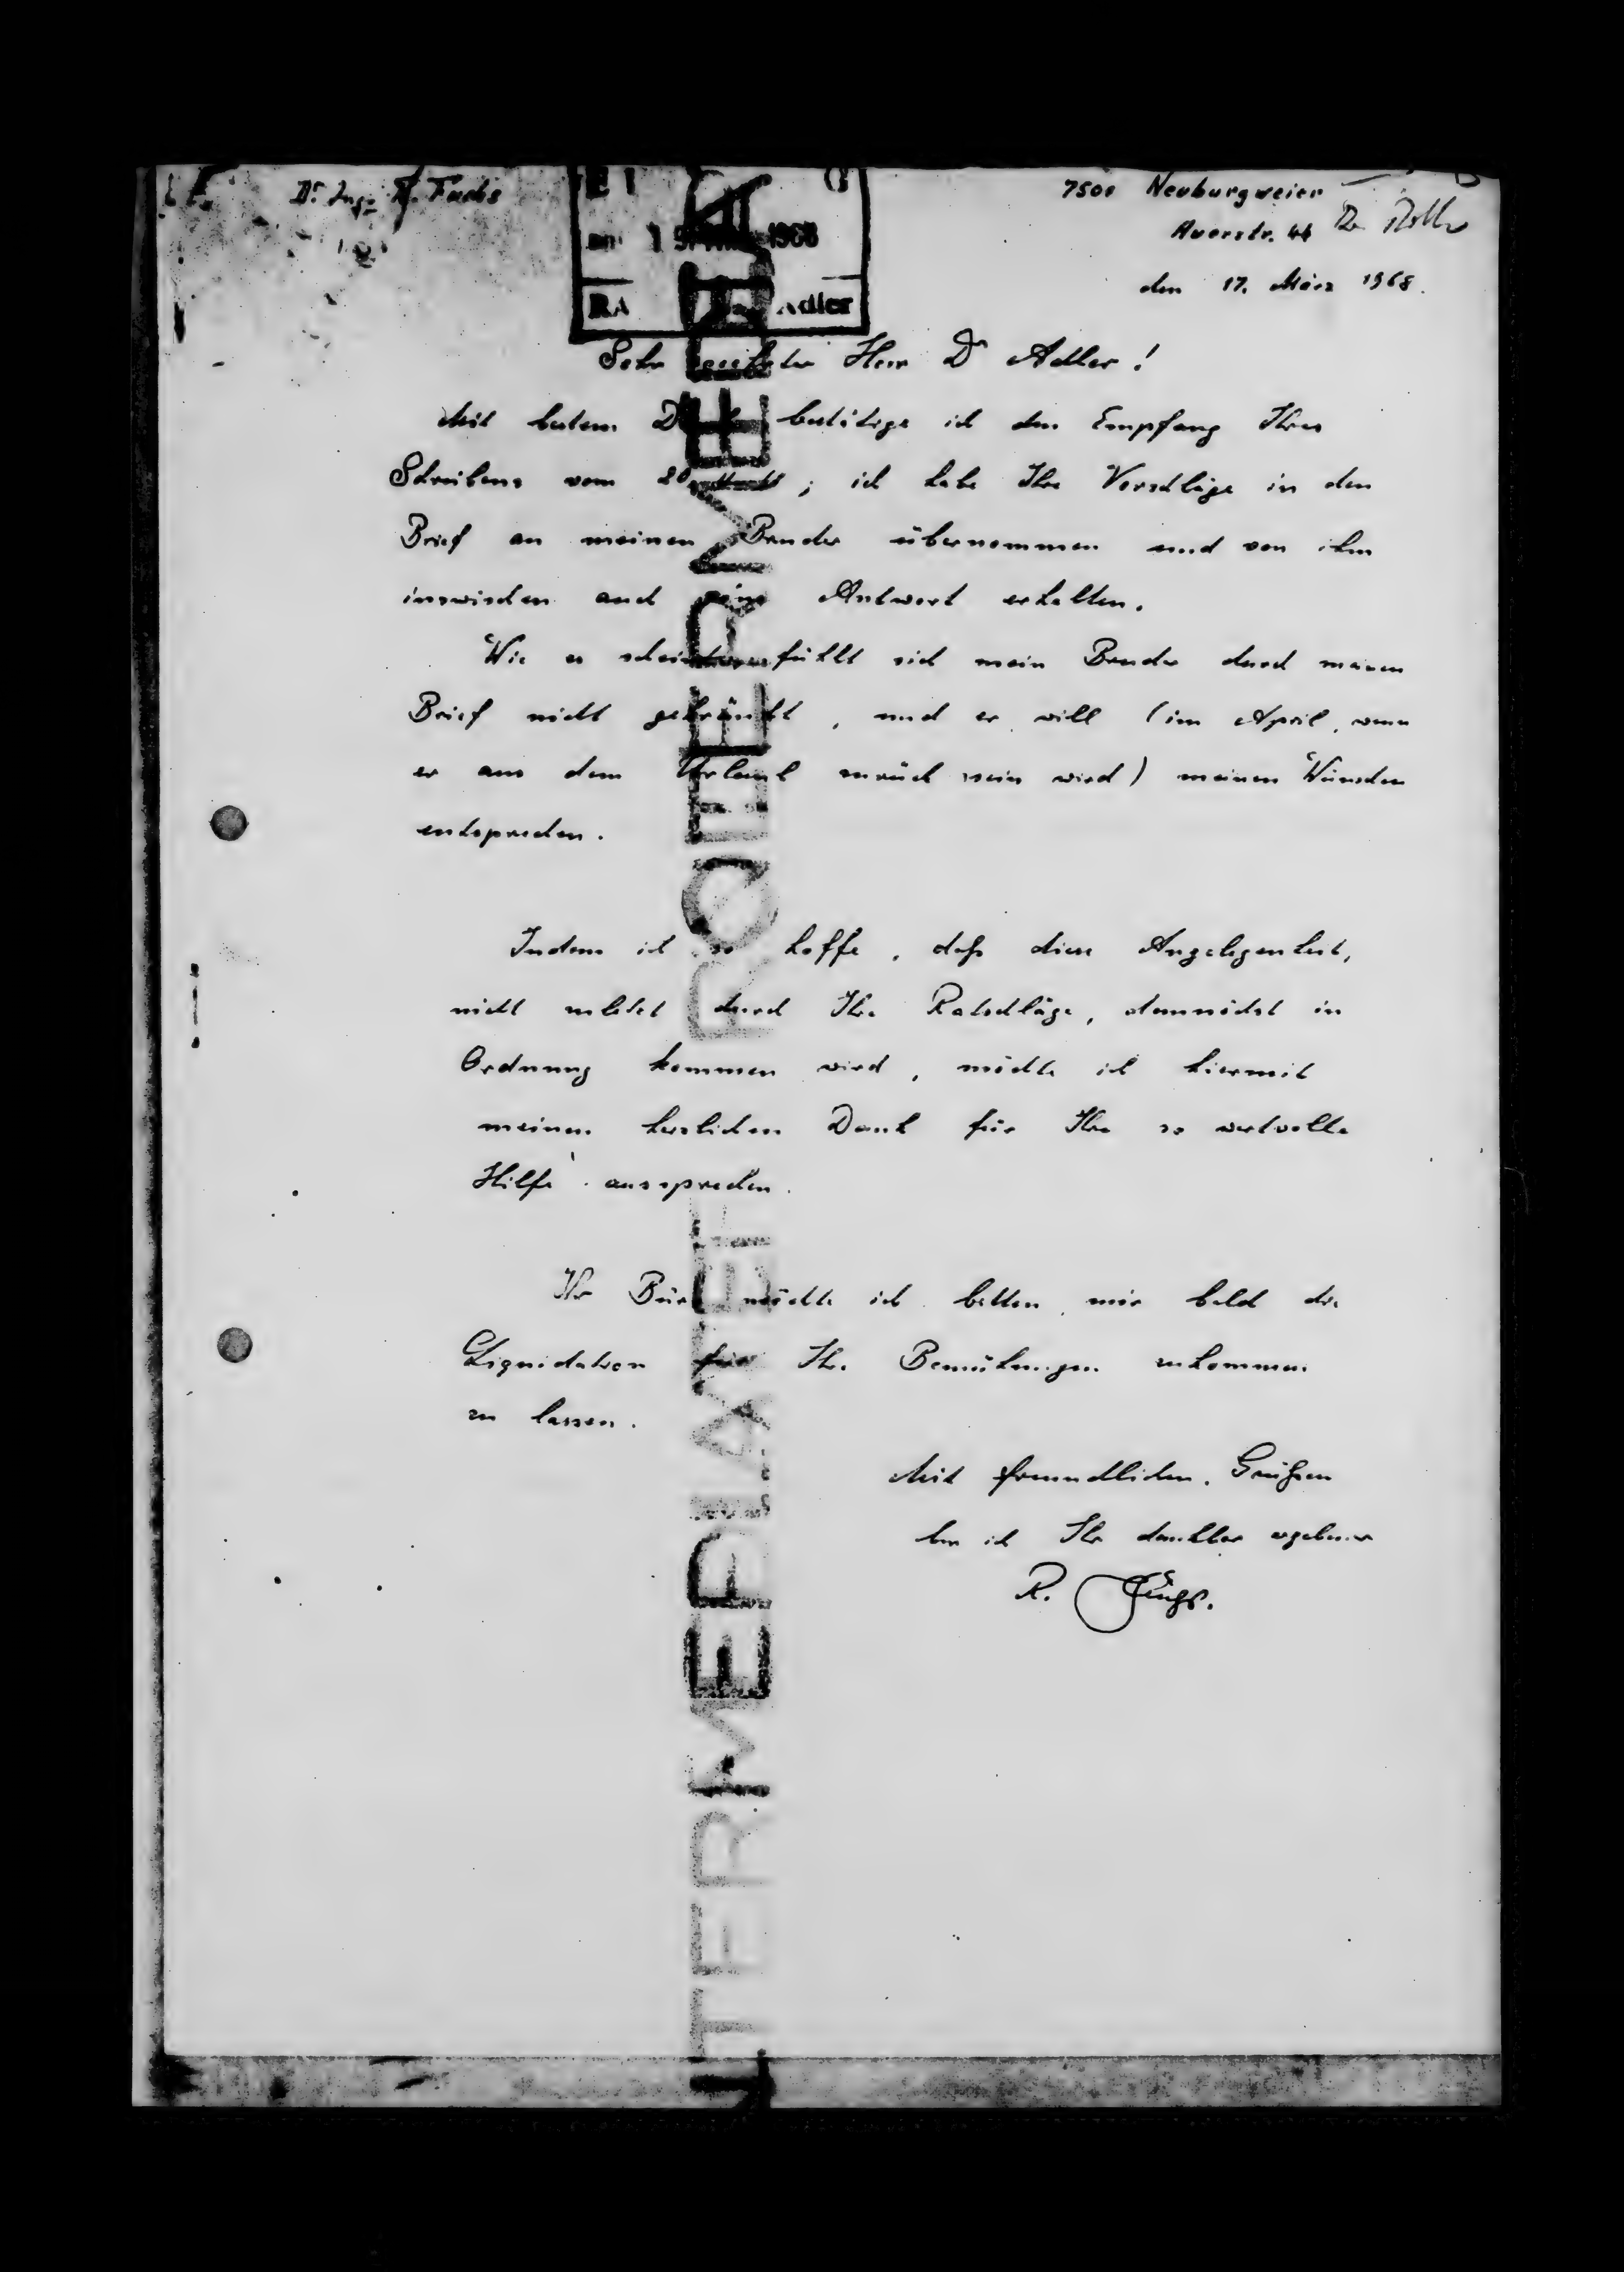 Dr. Ing. R. Fuchs
7500 Neuburgweier
Auerstr. 44
Dr. Adler
1968
den 17. März 1968.
RA Adler
Sehr geehrter Herr Dr Adler!
Mit bestem Dank bestätige ich den Empfang Ihres
Schreibens vom ; ich habe Ihre Vorschläge in den
Brief an meinen Bruder übernommen und von ihm
inzwischen auch eine Antwort erhalten.
Wie es scheint fühlt sich mein Bruder durch meinen
Brief nicht gekränkt, und er will (im April, wenn
er aus dem Urlaub zurück sein wird) meinen Wünschen
entsprechen.
Indem ich so hoffe, daß diese Angelegenheit,
nicht zuletzt durch Ihre Ratschläge, demnächst in
Ordnung kommen wird, möchte ich hiermit
meinen herzlichen Dank für Ihre so wertvolle
Hilfe aussprechen.
Ihr Büro möchte ich bitten, mir bald die
Liquidation für Ihre Bemühungen zukommen
zu lassen.
Mit freundlichen Grüßen
bin ich Ihr dankbar ergebener
R. Fuchs.